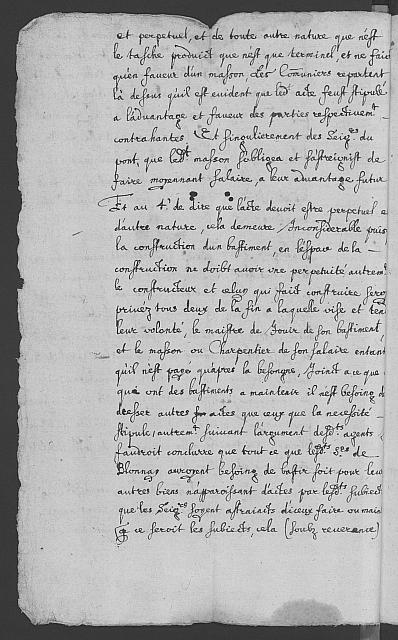 et perpetuel, et de toute autre nature que n'est
le tasche produict que n'est que terminel, et ne faict
qu'en faveur d'un masson, les Comuniers repartent
la dessus qu'il est evident que led' acte feust stipulé
a l'advantage et faveur des parties respectivem't
contrahantes. Et singulierement des Seig'rs du
pont, que led't masson s'obligea et s'astreignist de
faire moyennant salaire, a leur advantage futur
Et au 4'e de dire que l'acte devoit estre perpetuel et
d'autre nature, cela demeure Inconsiderable puis
la construction d'un bastiment, en l'espace de la
construction ne doibt avoir une perpetuité autrem't
le constructeur et celuy qui faict construire seroyent
privéz tous deux de la fin a laquelle vise et tend
leur volonté, le maistre de Jouir de son bastiment
et le masson ou Charpentier de son salaire entant
qu'il n'est payé qu'apres la besongne, Joinct a ce que
que ont des bastiments a maintenir il n'est besoing de
dresser autres actes que ceux que la necessité
stipule, autrem't suivant l'argument desd'ts agents
faudroit conclurre que tout ce que lesd'ts S'rs de
Blonnay auroyent besoing de bastir soit pour leur
autres biens n'apparoissant d'actes par lesd'ts subiects
que les Seig'rs soyent astraincts d'iceux faire ou main
ce seroit les subiects, cela (soubz reverence)